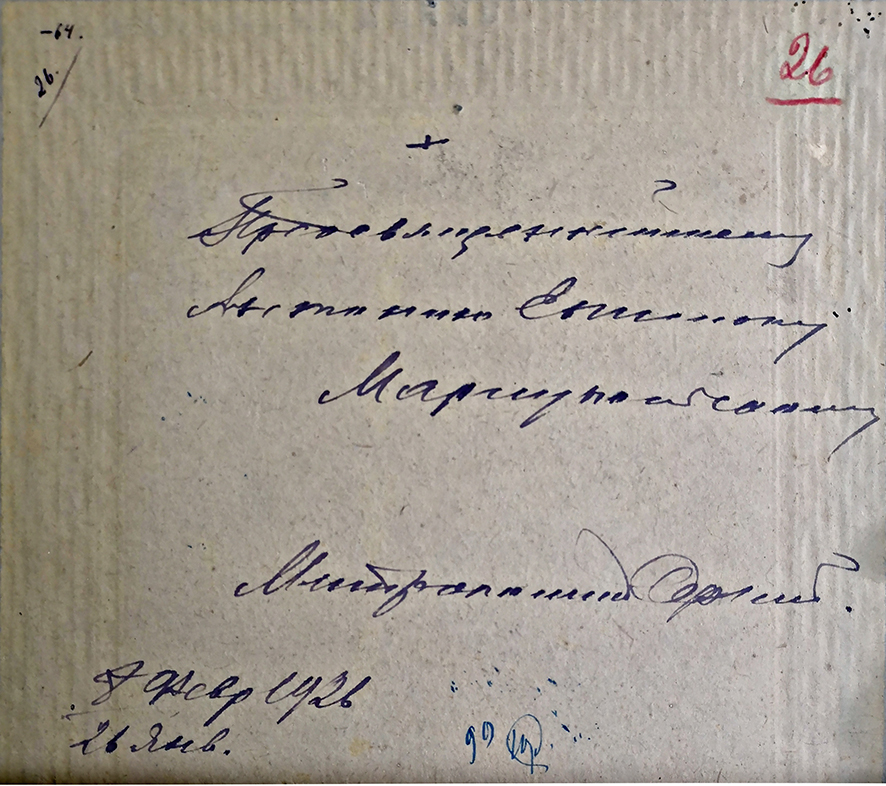 -64.
26.
26
+
Преосвященнейшему
Антонию Епископу
Мариупольскому
Митрополит Сергий.
8 Февр 1926
26 Янв.
99